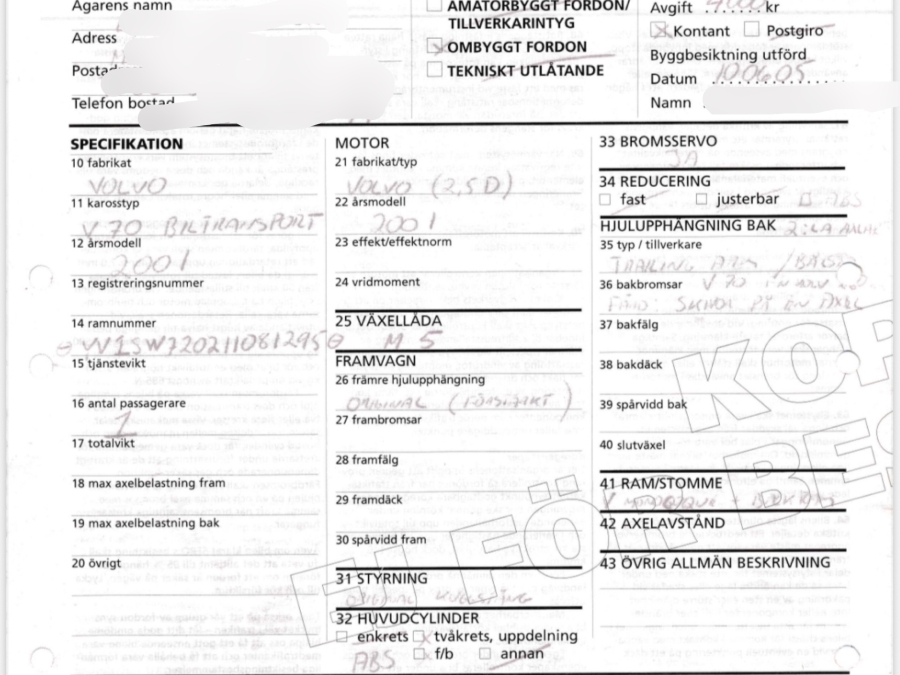 Ägarens namn
Adress
Postad
Telefon bostad
AMATÖRBYGGT FORDON/
TILLVERKARINTYG
OMBYGGT FORDON
TEKNISKT UTLÅTANDE
Avgift kr
Kontant Postgiro
Byggbesiktning utförd
Datum 100605
Namn
SPECIFIKATION
10 fabrikat
VOLVO
11 karosstyp
V70 BILTRANSPORT
12 årsmodell
2001
13 registreringsnummer
14 ramnummer
15 tjänstevikt
16 antal passagerare
1
17 totalvikt
18 max axelbelastning fram
19 max axelbelastning bak
20 övrigt
MOTOR
21 fabrikat/typ
VOLVO (2,5D)
22 årsmodell
2001
23 effekt/effektnorm
24 vridmoment
25 VÄXELLÅDA
M5
FRAMVAGN
26 främre hjulupphängning
ORIGINAL
27 frambromsar
28 framfälg
29 framdäck
30 spårvidd fram
31 STYRNING
ORIGINAL KUGGSTÅNG
32 HUVUDCYLINDER
enkrets tvåkrets, uppdelning
f/b annan
ABS
33 BROMSSERVO
JA
34 REDUCERING
fast justerbar ABS
HJULUPPHÄNGNING BAK
35 typ / tillverkare
TRAILING ARM
36 bakbromsar V70
SKIVOR PÅ EN AXEL
37 bakfälg
38 bakdäck
39 spårvidd bak
40 slutväxel
41 RAM/STOMME
42 AXELAVSTÅND
43 ÖVRIG ALLMÄN BESKRIVNING
KOR
EJ FÖR BES